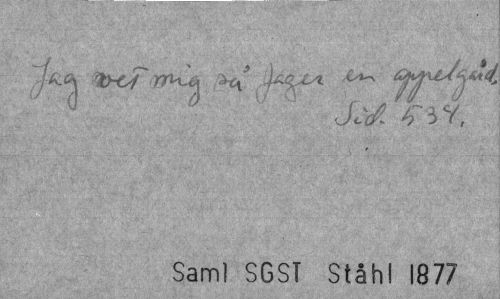 Jag vet mig så fager en appelgård.
Sid. 534.
Saml SGST Ståhl 1877